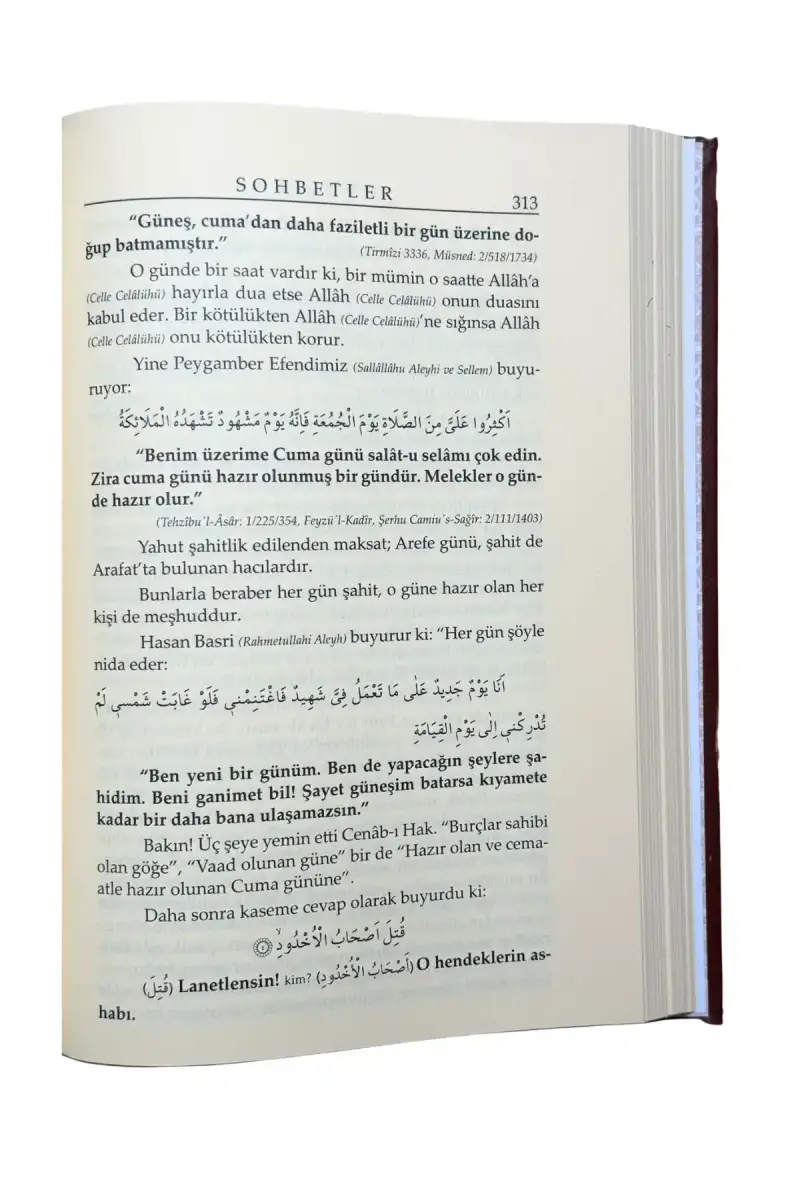 SOHBETLER
313
“Güneş, cuma’dan daha faziletli bir gün üzerine do-
ğup batmamıştır.”
(Tirmîzi 3336, Müsned: 2/518/1734)
O günde bir saat vardır ki, bir mümin o saatte Allâh’a
(Celle Celâlühü) hayırla dua etse Allâh (Celle Celâlühü) onun duasını
kabul eder. Bir kötülükten Allâh (Celle Celâlühü)’ne sığınsa Allâh
(Celle Celâlühü) onu kötülükten korur.
Yine Peygamber Efendimiz (Sallâllâhu Aleyhi ve Sellem) buyu-
ruyor:
اَكْثِرُوا عَلَيَّ مِنَ الصَّلَاةِ يَوْمَ الْجُمُعَةِ فَاِنَّهُ يَوْمٌ مَشْهُودٌ تَشْهَدُهُ الْمَلَائِكَةُ
“Benim üzerime Cuma günü salât-u selâmı çok edin.
Zira cuma günü hazır olunmuş bir gündür. Melekler o gün-
de hazır olur.”
(Tehzîbu'l-Âsâr: 1/225/354, Feyzü'l-Kadîr, Şerhu Camiu's-Sağîr: 2/111/1403)
Yahut şahitlik edilenden maksat; Arefe günü, şahit de
Arafat’ta bulunan hacılardır.
Bunlarla beraber her gün şahit, o güne hazır olan her
kişi de meşhuddur.
Hasan Basri (Rahmetullahi Aleyh) buyurur ki: “Her gün şöyle
nida eder:
اَنَا يَوْمٌ جَدِيدٌ عَلٰى مَا تَعْمَلُ فِيَّ شَهِيدٌ فَاغْتَنِمْنٖي فَلَوْ غَابَتْ شَمْسٖي لَمْ
تُدْرِكْنٖي اِلٰى يَوْمِ الْقِيَامَةِ
“Ben yeni bir günüm. Ben de yapacağın şeylere şa-
hidim. Beni ganimet bil! Şayet güneşim batarsa kıyamete
kadar bir daha bana ulaşamazsın.”
Bakın! Üç şeye yemin etti Cenâb-ı Hak. “Burçlar sahibi
olan göğe”, “Vaad olunan güne” bir de “Hazır olan ve cema-
atle hazır olunan Cuma gününe”.
Daha sonra kaseme cevap olarak buyurdu ki:
قُتِلَ اَصْحَابُ الْاُخْدُودِۙ ﴿٤﴾
(قُتِلَ) Lanetlensin! kim? (اَصْحَابُ الْاُخْدُودِ) O hendeklerin as-
habı.